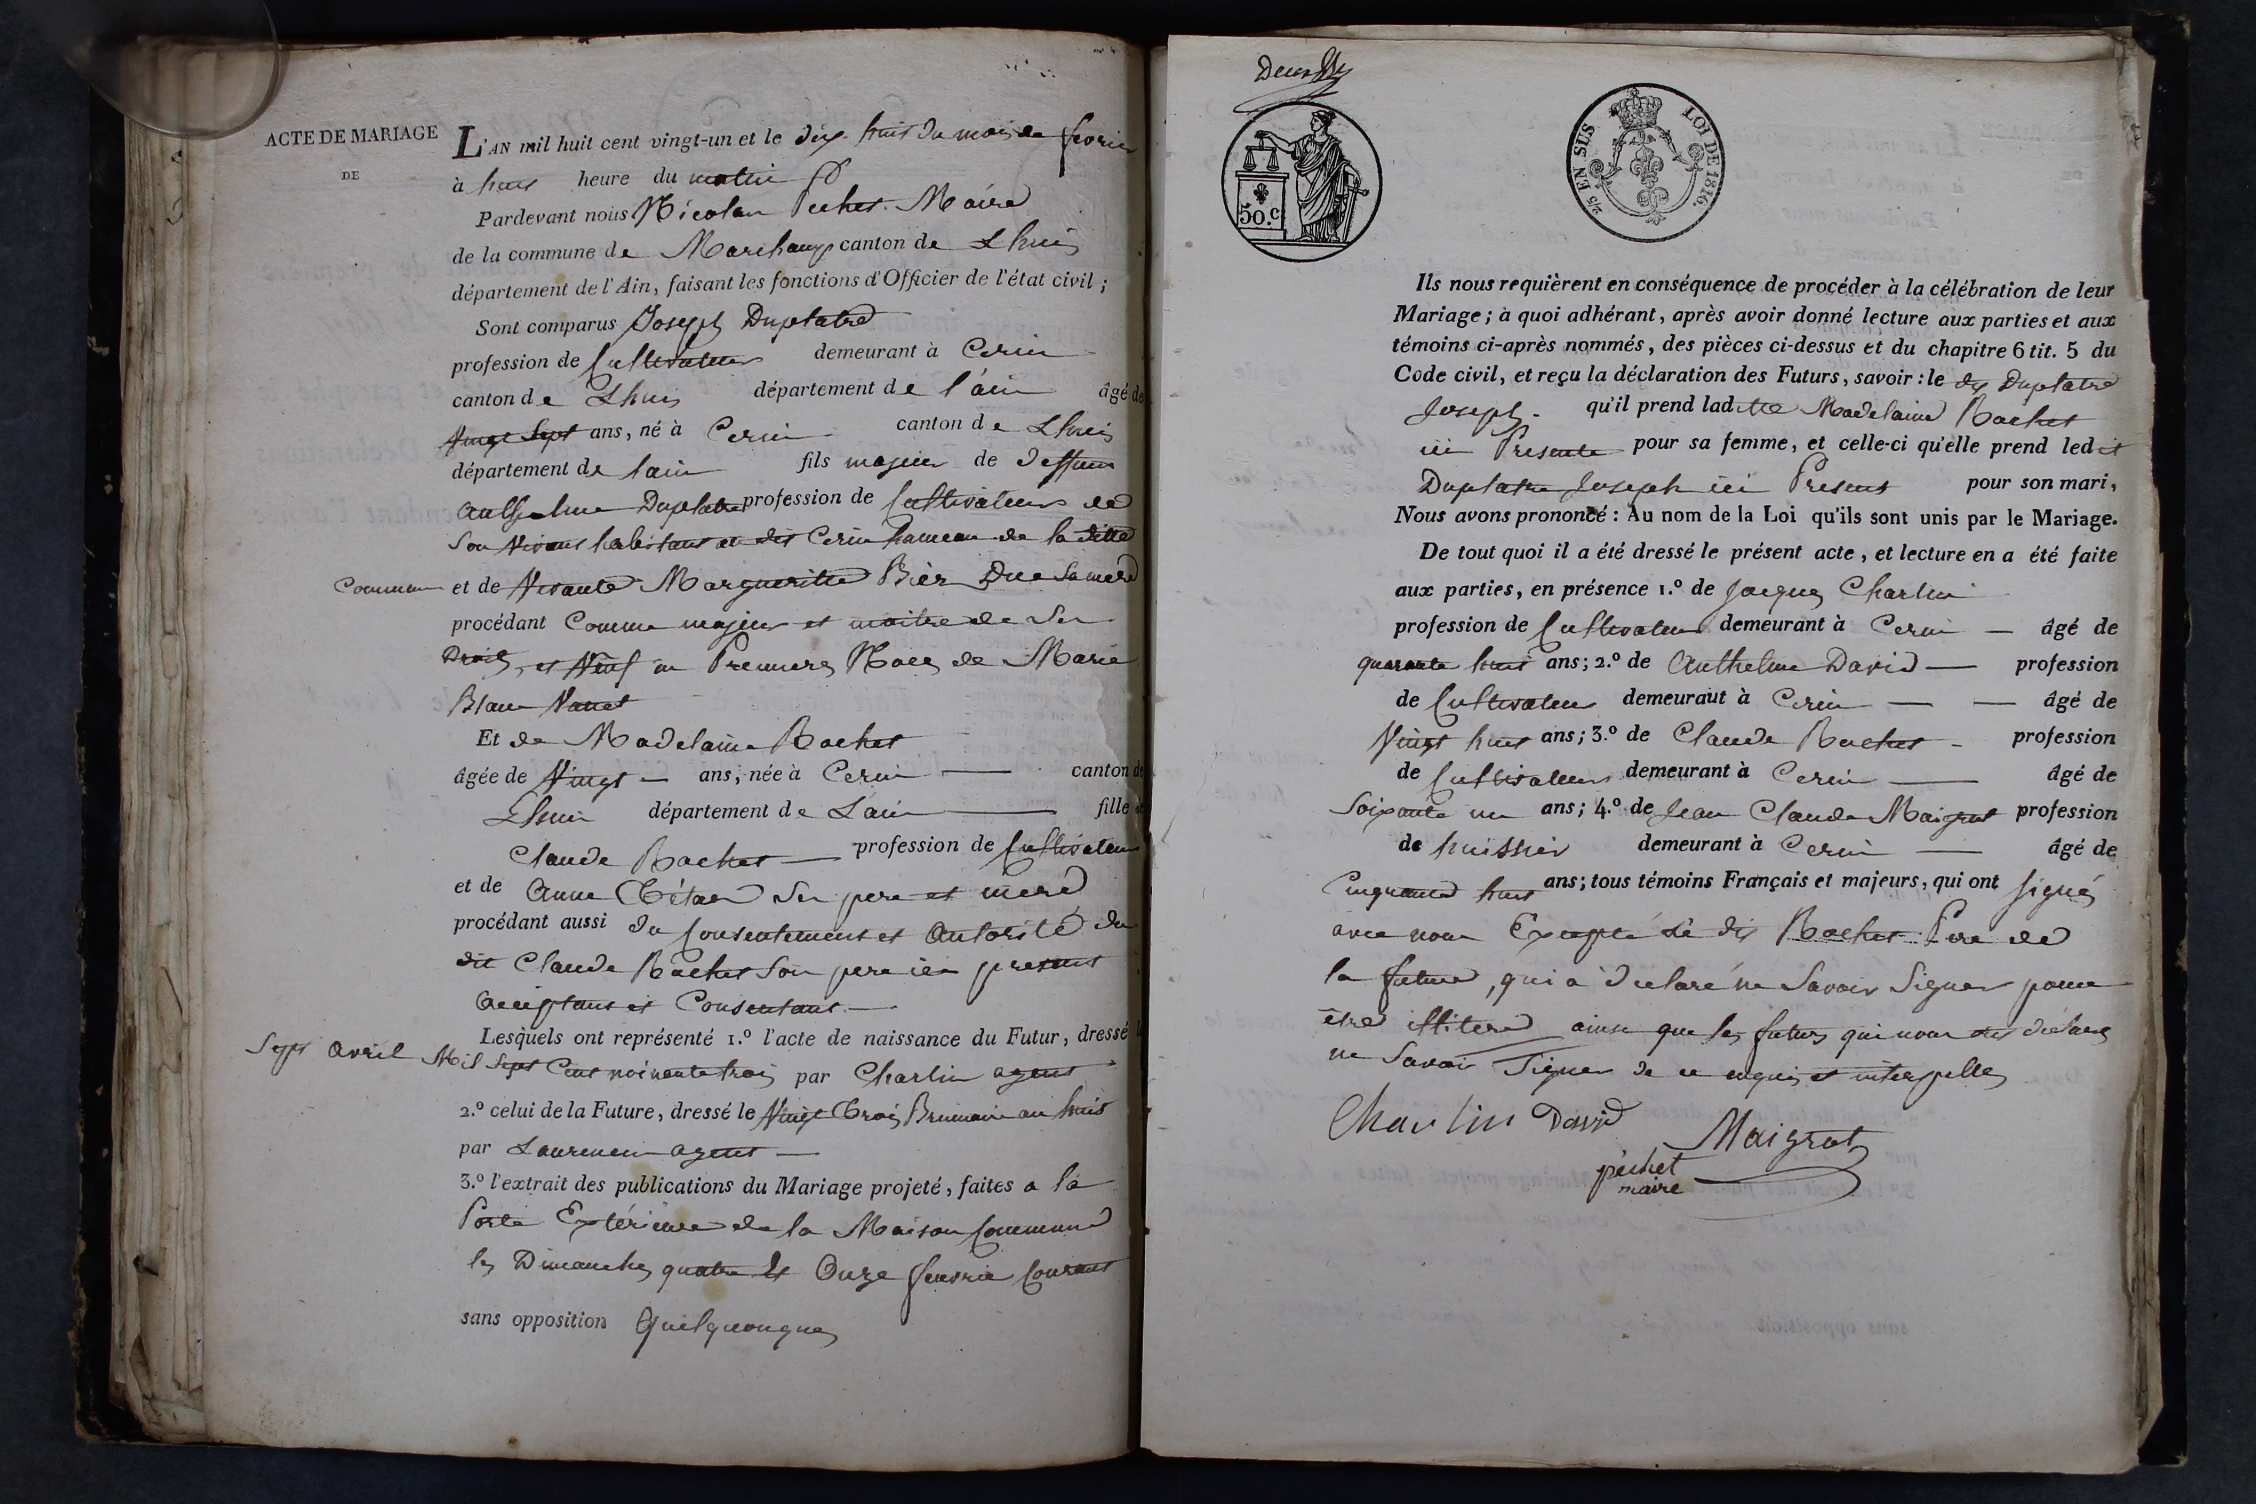 ACTE DE MARIAGE
DE
L'AN mil huit cent vingt-un et le dix huit du mois de fevrier
à huit heure du matin
Pardevant nous Nicolas Pechet Maire
de la commune de Marchamp canton de Lhuis
département de l'Ain, faisant les fonctions d'Officier de l'état civil;
Sont comparus Joseph Duplatre
profession de Cultivateur demeurant à Cerin
canton de Lhuis département de l'ain âgé de
Vingt Sept ans, né à Cerin canton de Lhuis
département de l'ain fils majeur de deffunt
Anthelme Duplatre profession de Cultivateur de
Son Vivant habitant au dit Cerin hameau de la ditte
Commune et de Vivante Margueritte Sa mere
procédant Comme majeur et maitre de Ses
Droits, et Veuf en Premieres Noces de Marie
Blanc
Et de Madelaine Rochet
âgée de Vingt ans, née à Cerin canton de
Lhuis département de L'ain fille de
Claude Rochet profession de Cultivateur
et de Anne Ses pere et mere
procédant aussi du Consentement et Autorité du
dit Claude Rochet Son pere ici present
Acceptant et Consentant
Lesquels ont représenté 1.º l'acte de naissance du Futur, dressé le
Sept avril Mil Sept Cent noinante trois par Charlin agent
2.º celui de la Future, dressé le Vingt Trois Brumaire an huit
par agent
3.º l'extrait des publications du Mariage projeté, faites a la
Porte Extérieure de la Maison Commune
les Dimanches quatre et Onze fevrier Courant
sans opposition Quelquonques
50.c
2/5 EN SUS
LOI DE 1816.
Ils nous requièrent en conséquence de procéder à la célébration de leur
Mariage; à quoi adhérant, après avoir donné lecture aux parties et aux
témoins ci-après nommés, des pièces ci-dessus et du chapitre 6 tit. 5 du
Code civil, et reçu la déclaration des Futurs, savoir: le dit Duplatre
Joseph qu'il prend laditte Madelaine Rochet
ici Presente pour sa femme, et celle-ci qu'elle prend ledit
Duplatre Joseph ici Present pour son mari,
Nous avons prononcé: Au nom de la Loi qu'ils sont unis par le Mariage.
De tout quoi il a été dressé le présent acte, et lecture en a été faite
aux parties, en présence 1.º de Jacques Charlin
profession de Cultivateur demeurant à Cerin âgé de
quarante huit ans; 2.º de Anthelme David profession
de Cultivateur demeurant à Cerin âgé de
Vingt huit ans; 3.º de Claude Rochet profession
de Cultivateur demeurant à Cerin âgé de
Soixante un ans; 4.º de Jean Claude Maigrot profession
de huissier demeurant à Cerin âgé de
Cinquante huit ans; tous témoins Français et majeurs, qui ont signé
avec nous Excepté Le dit Rochet Pere de
la future, qui a déclaré ne Savoir Signer pour
être illitere ainsi que les futurs qui nous ont déclaré
ne Savoir Signer de ce enquis et interpellés
Charlin David Maigrot
pechet
maire